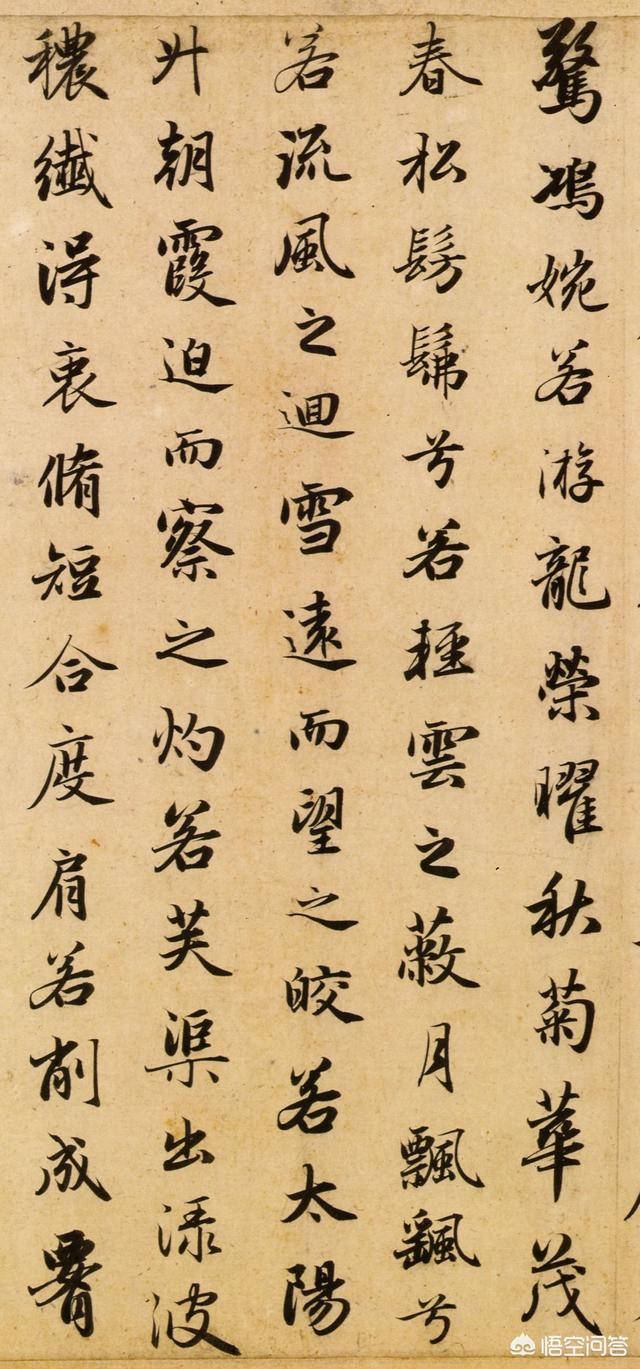 驚鴻婉若游龍榮曜秋菊華茂
春松髣髴兮若輕雲之蔽月飄颻兮
若流風之迴雪遠而望之皎若太陽
升朝霞迫而察之灼若芙渠出淥波
穠纖得衷脩短合度肩若削成署
悟空问答